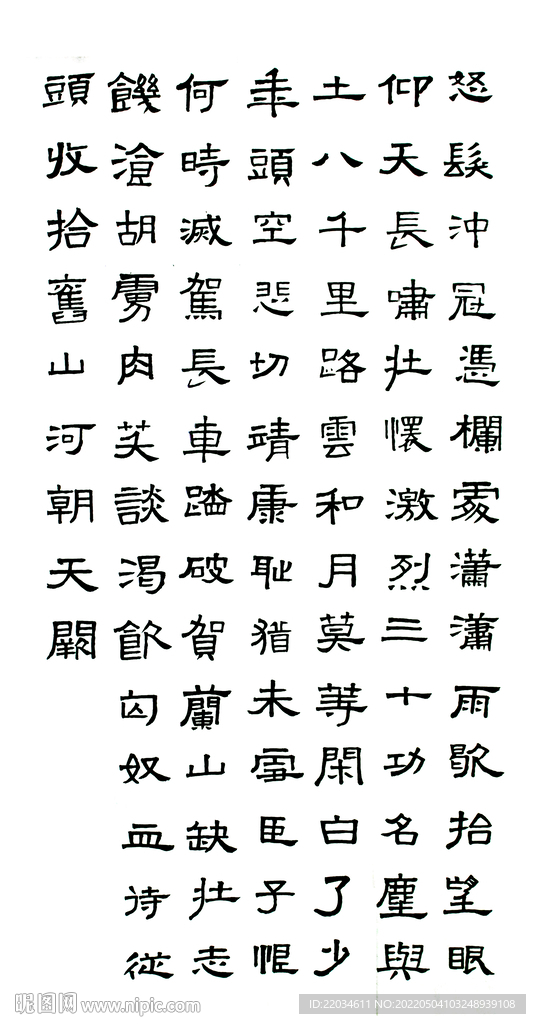 怒髮沖冠憑欄處瀟瀟雨歇抬望眼
仰天長嘯壯懷激烈三十功名塵與
土八千里路雲和月莫等閑白了少
年頭空悲切靖康耻猶未雪臣子恨
何時滅駕長車踏破賀蘭山缺壯志
饑滄胡虜肉笑談渴飲匈奴血待從
頭收拾舊山河朝天闕
昵图网 www.nipic.com
ID:22034611 NO:20220504103248939108